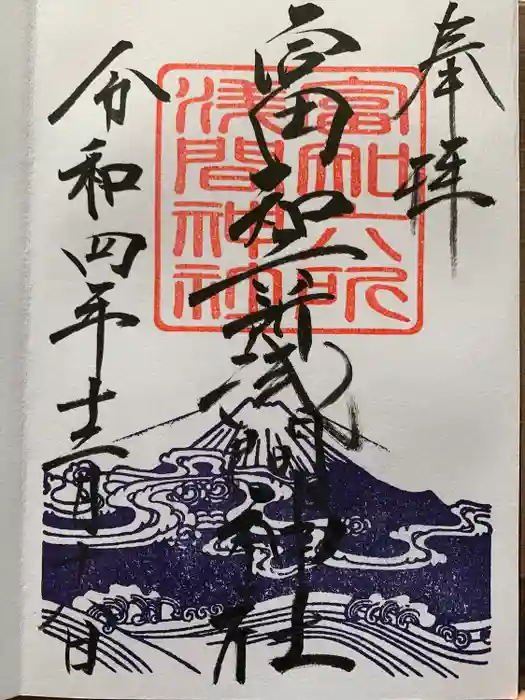 奉拝
富知六所浅間神社
令和四年十二月十八日
富知六所
浅間神社